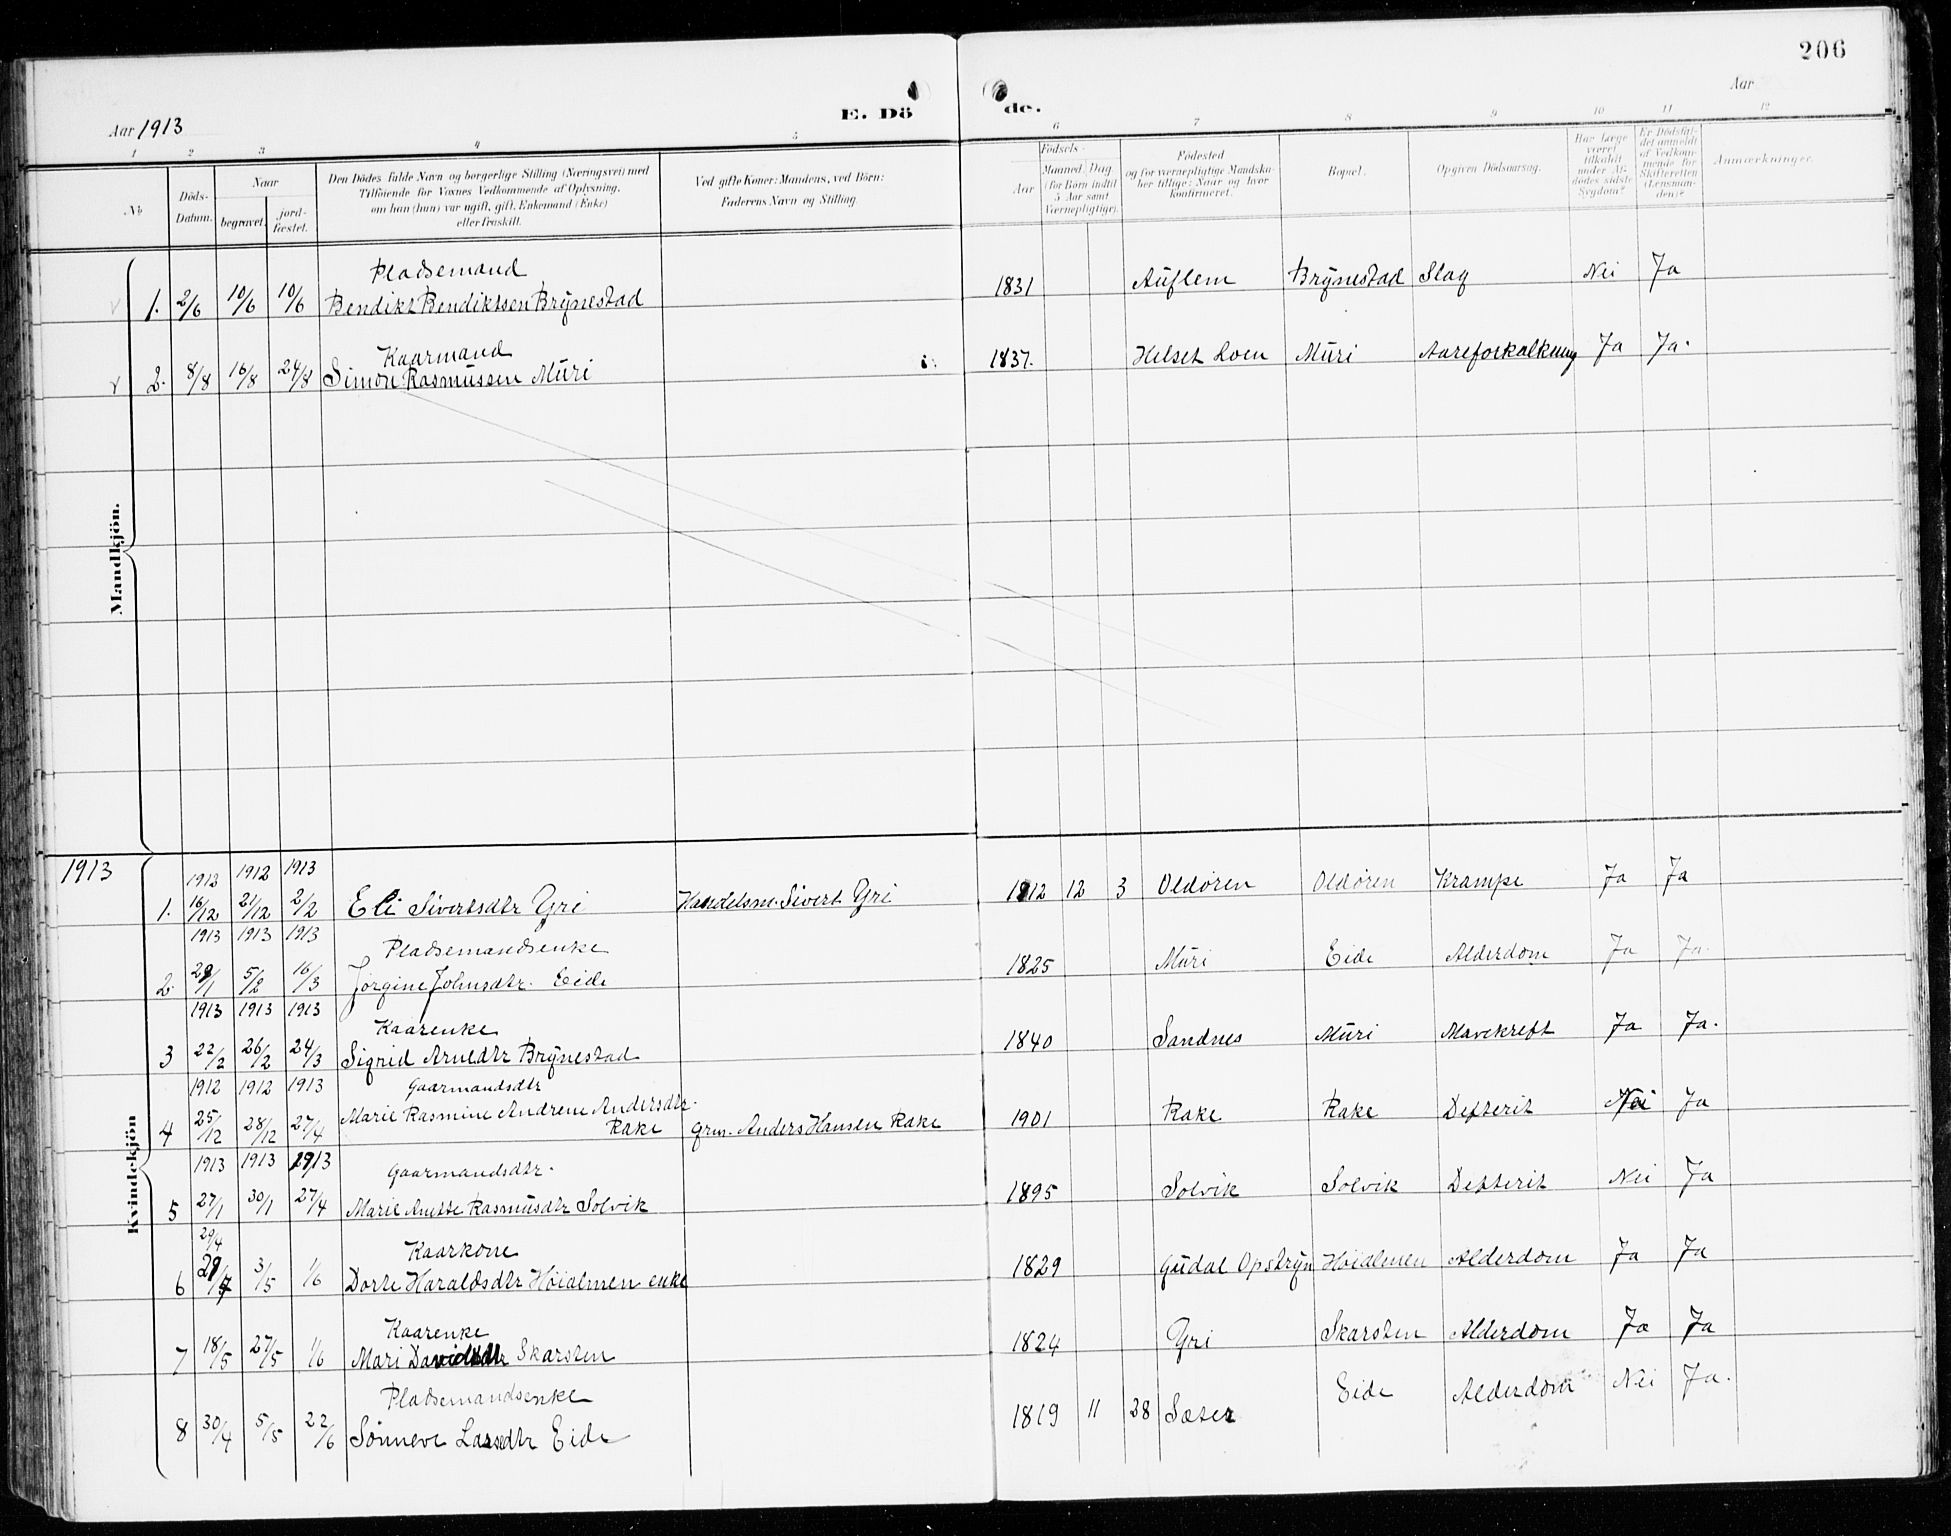 206
Aar 1913
E. Dö de.
Aar
1 2 3 4 5 6 7 8 9 10 11 12
No
Döds-Datum.
Naar
begravet.
jord-fæstet.
Den Dödes fulde Navn og borgerlige Stilling (Næringsvei) med
Tilföiende for Voxnes Vedkommende af Oplysning,
om han (hun) var ugift, gift, Enkemand (Enke)
eller fraskilt.
Ved gifte Koner: Mandens, ved Börn:
Faderens Navn og Stilling.
Födsels-
Aar
Maaned Dag
(for Börn indtil
5 Aar samt
Værnepligtige).
Födested
og for værnepligtige Mandska-
ber tillige: Naar og hvor
konfirmeret.
Bopæl.
Opgiven Dödsaarsag.
Har læge
været
tilkaldt
under Af-
dödes sidste
Sygdom?
Er Dödsfal-
det anmeldt
af Vedkom-
mende for
Skifteretten
(Lensman-
den)?
Anmærkninger.
Mandkjön.
Pladsemand
1. 2/6 10/6 10/6 Bendikt Bendiktsen Brynestad 1831 Auflem Brynestad Slag Nei Ja
Kaarmand
2. 8/8 16/8 24/8 Simon Rasmussen Muri 1837. Helset Loen Muri Aareforkalkning Ja Ja.
Kvindekjön
1913
1912 1912 1913
1. 16/12 21/12 2/2 Eli Sivertsdtr Yri Handelsm. Sivert Yri 1912 12 3 Oldören Oldören Krampe Ja Ja
1913 1913 1913 Pladsemandsenke
2. 29/1 5/2 16/3 Jörgine Johnsdtr. Eide 1825 Muri Eide Alderdom Ja Ja.
1913 1913 1913 Kaarenke
3 22/2 26/2 24/3 Sigrid Arnedtr Brynestad 1840 Sandnes Muri Mavekreft Ja Ja.
1912 1912 1913 Gaarmandsdtr
4 25/12 28/12 27/4 Marie Rasmine Andrene Andersdtr. Rake Grm. Anders Hansen Rake 1901 Rake Rake Defterit Nei Ja
1913 1913 1913 Gaarmandsdtr.
5 27/1 30/1 27/4 Marie Anette Rasmusdtr Solvik 1895 Solvik Solvik Defterit Nei Ja
29/4 Kaarkone
6 3/5 1/6 Dorte Haraldsdtr Höialmen enke 1829 Gudal Opstryn Höialmen Alderdom Ja Ja
Kaarenke
7 18/5 27/5 1/6 Mari Davidsdtr Skarsten 1824 Yri Skarsten Alderdom Ja Ja
Pladsemandsenke
8 30/4 5/5 22/6 Sönneve Lassedtr Eide 1819 11 28 Sæter Eide Alderdom Nei Ja.